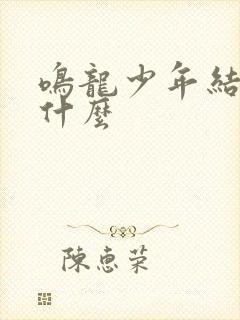 鳴龍少年結
什麼
陳惠荣